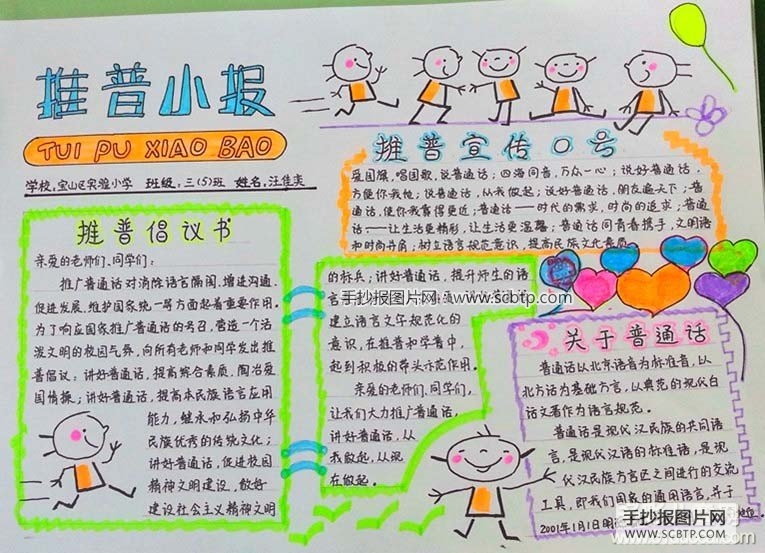 推普小报
TUI PU XIAO BAO
学校:宝山区实验小学 班级:三(5)班 姓名:汪佳奕
推普倡议书
亲爱的老师们、同学们:
推广普通话对消除语言隔阂、增进沟通、
促进发展、维护国家统一等方面起着重要作用。
为了响应国家推广普通话的号召,营造一个活
泼文明的校园气氛,向所有老师和同学发出推
普倡议:讲好普通话,提高综合素质,陶冶爱
国情操;讲好普通话,提高本民族语言应用
能力,继承和弘扬中华
民族优秀的传统文化;
讲好普通话,促进校园
精神文明建设,做好
建设社会主义精神文明
的标兵;讲好普通话,提升师生的语
言
手抄报图片网:\www.scbtp.com
建立语言文字规范化的
意识,在推普和学普中,
起到积极的带头示范作用。
亲爱的老师们、同学们,
让我们大力推广普通话,
讲好普通话,从
我做起,从现
在做起。
推普宣传口号
爱国旗,唱国歌,说普通话;四海同音,万众一心;说好普通话,
方便你我他;说普通话,从我做起;说好普通话,朋友遍天下;普
通话,使你我靠得更近;普通话——时代的需求,时尚的追求;普通
话——让生活更精彩,让生活更温馨;普通话同青春携手,文明语
和时尚并肩;树立语言规范意识,提高民族文化素质
关于普通话
普通话以北京语音为标准音,以
北方话为基础方言,以典范的现代白
话文著作为语言规范。
普通话是现代汉民族的共同语
言,是现代汉语的标准语,是现
代汉民族方言区之间进行的交流
工具,即我们国家的通用语言,并于
2001年1月1日明 地位。
手抄报图片网
WWW.SCBTP.COM